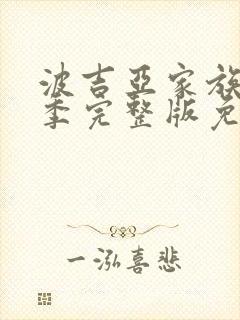 波吉亚家族
季完整版免
一泓喜悲